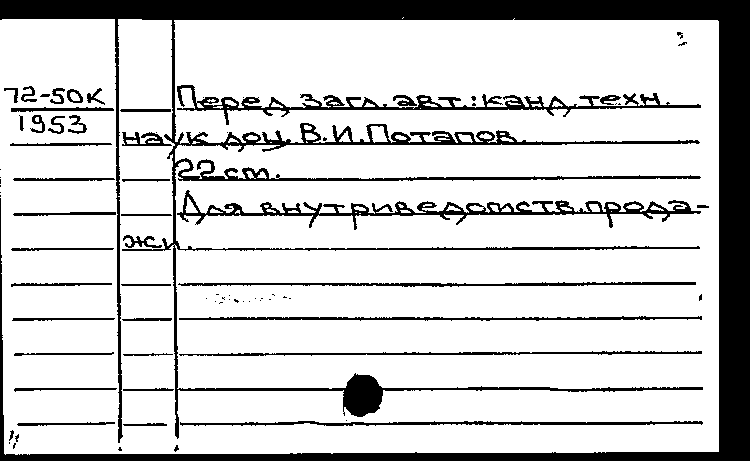 72-50К Перед загл. авт.: канд. техн.
1953 наук доц. В.И. Потапов.
22 cm.
Для внутриведомств. прода-
жи.